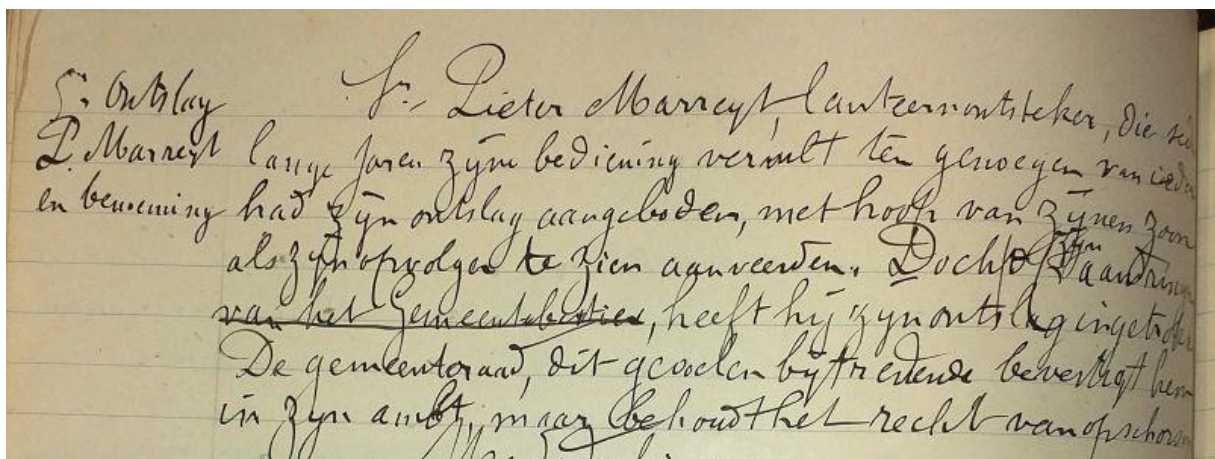 5. Ontslag
P. Marreyt
en benoeming
Sr. Pieter Marreyt, lanteernontsteker, die sed
lange jaren zijne bediening vervult ten genoegen van ieder
had zijn ontslag aangeboden, met hoop van zijnen zoon
als zijn opvolger te zien aanveerden. Doch op zijn aandringen
van het Gemeentebestier, heeft hij zijn ontslag ingetrokken
De gemeenteraad, dit bijtredende bevestigt hem
in zijn ambt, maar behoudt het recht van opschorsen